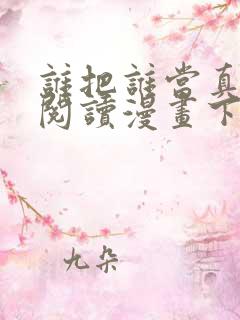 誰把誰當真
閱讀漫畫下
九朵